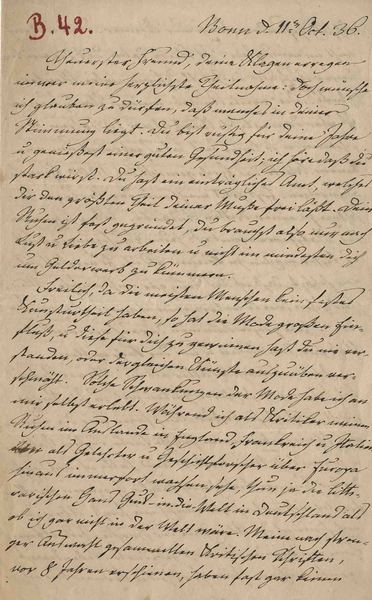 B. 42.
Bonn d. 11ᵗ Oct. 36.
Theuerster Freund, deine Klagen erregen
immer meine herzlichste Theilnahme: doch wünsche
ich glauben zu dürfen, daß manches in deiner
Stimmung liegt. Du bist rüstig für deine Jahre
u genießest einer guten Gesundheit; ich höre daß du
stark wirst. Du hast ein einträgliches Amt, welches
dir den größten Theil deiner Muße frei läßt. Dein
Ruhm ist fest gegründet, du brauchst also nur nach
Lust u Liebe zu arbeiten u nicht im mindesten dich
um Gelderwerb zu kümmern.
Freilich, da die meisten Menschen kein festes
Kunsturtheil haben, so hat die Mode großen Ein-
fluß, u diese für dich zu gewinnen hast du nie ver-
standen, oder dergleichen Künste auszuüben ver-
schmäht. Solche Schwankungen der Mode habe ich an
mir selbst erlebt. Während ich als Kritiker meinen
Ruhm im Auslande in England, Frankreich u Italien
als Gelehrter u Geschichtsforscher über Europa
hinaus immerfort wachsen sehe, thun ja die litte-
rarischen Hans Guck in die Welt in Deutschland als
ob ich gar nicht in der Welt wäre. Meine nach stren-
ger Auswahl gesammelten Kritischen Schriften,
vor 8 Jahren erschienen, haben fast gar keinen